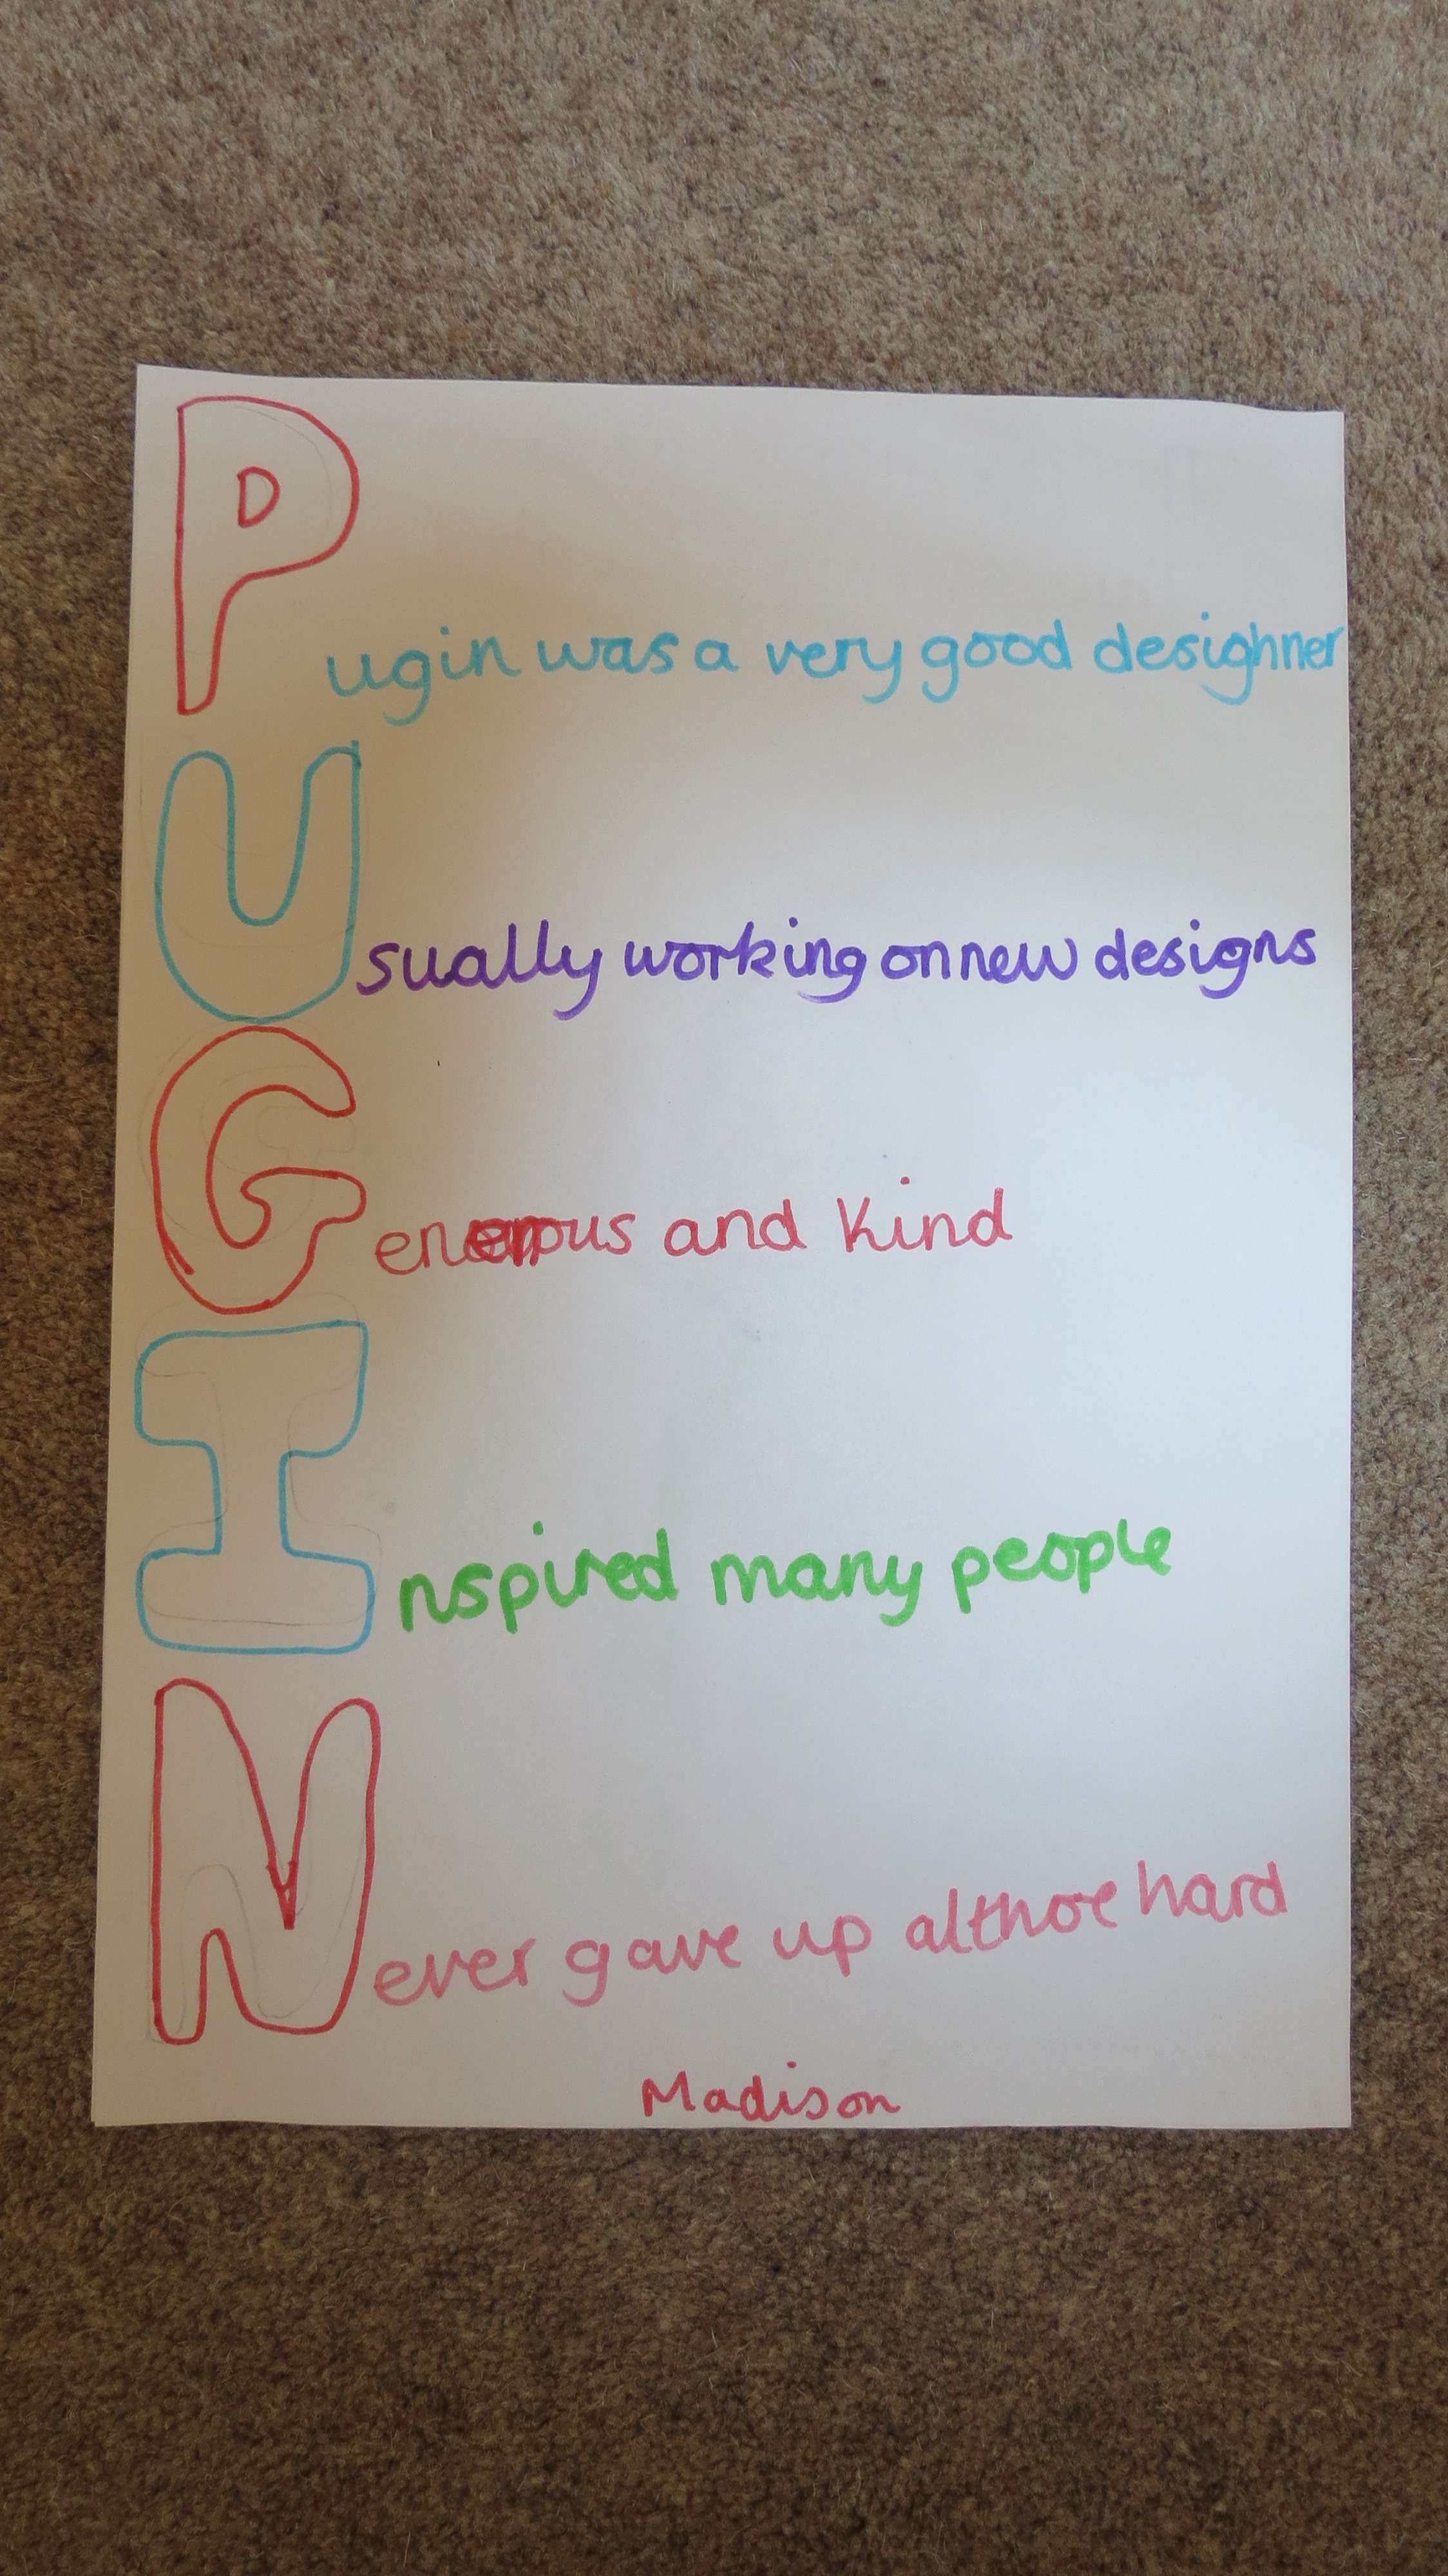 Pugin was a very good desighner
Usually working on new designs
Generous and kind
Inspired many people
Never gave up althoe hard
Madison